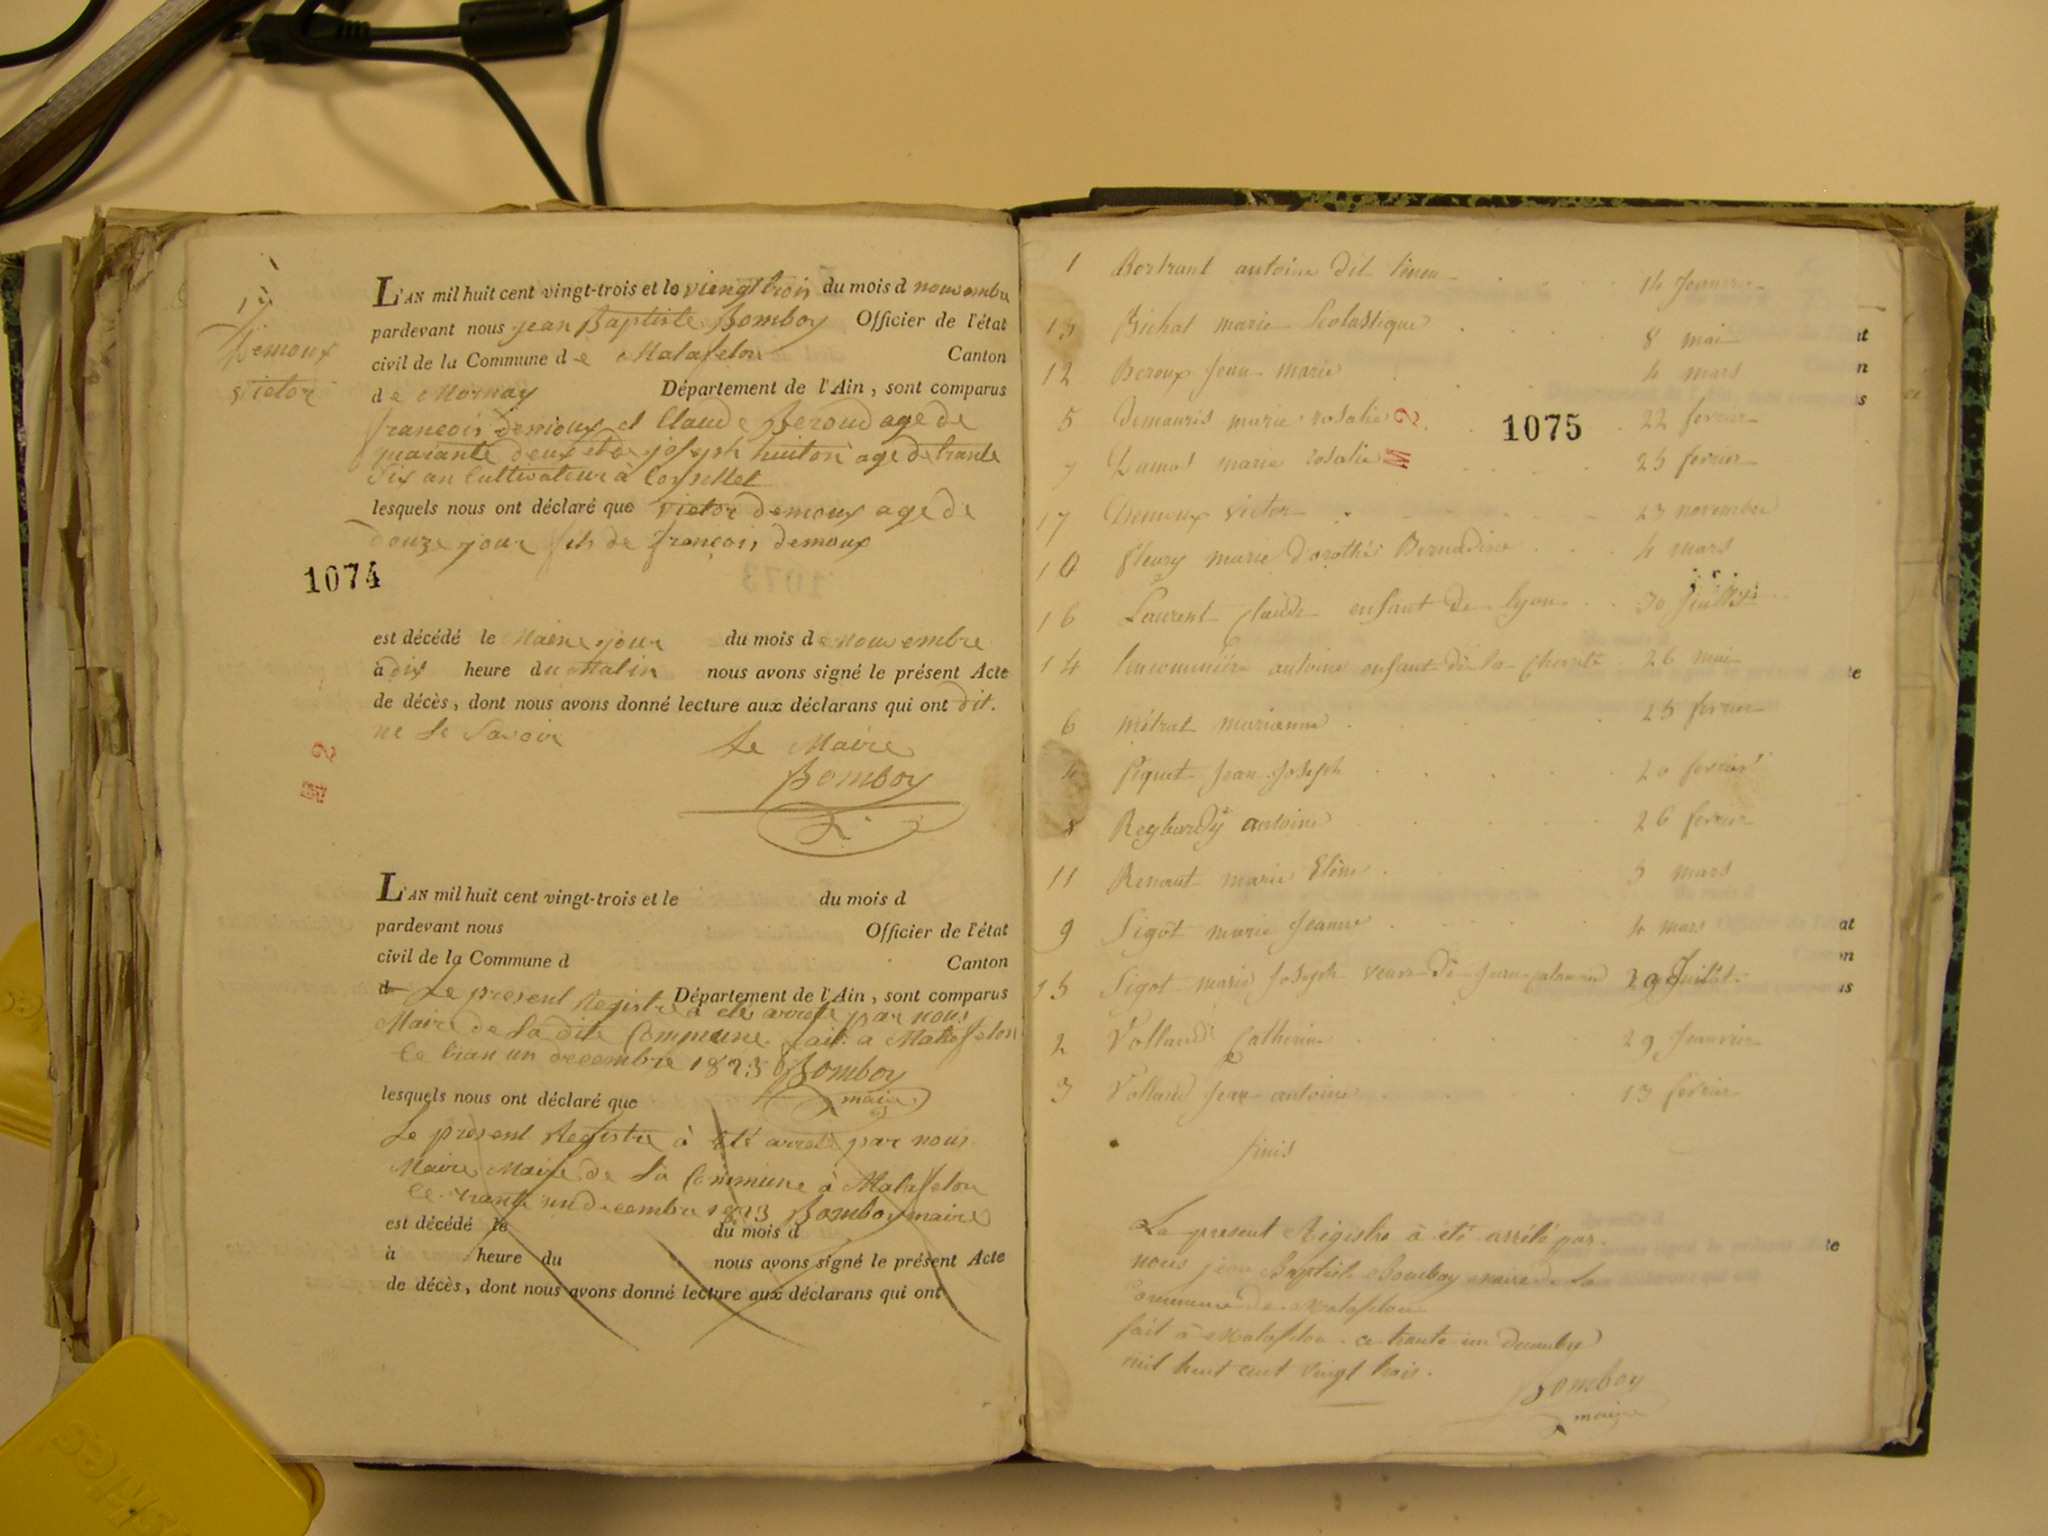 17
Demoux
victor
L'AN mil huit cent vingt-trois et le viengt trois du mois d nouvembre
pardevant nous jean Baptiste Bomboy Officier de l'état
civil de la Commune de Matafelon Canton
de Mornay Département de l'Ain, sont comparus
francois demoux et Claude Beroud age de
quarante deux et de joseph huiton age de trante
six an Cultivateur à
lesquels nous ont déclaré que victor demoux age de
douze jour fils de françois demoux
1074
est décédé le jour du mois de nouvembre
à dix heure du Matin nous avons signé le présent Acte
de décès, dont nous avons donné lecture aux déclarans qui ont dit.
ne le Savoir
Le Maire
Bomboy
M 2
L'AN mil huit cent vingt-trois et le du mois d
pardevant nous Officier de l'état
civil de la Commune d Canton
d Département de l'Ain, sont comparus
Le present Registre a ete arrete par nous
Maire de La dite Commune fait a Matafelon
le tran un decembre 1823 Bomboy
maire
lesquels nous ont déclaré que
Le present Registre à été arrete par nous
Maire Maire de La Commune à Matafelon
le trante un decembre 1823 Bomboy maire
est décédé le du mois d
à heure du nous avons signé le présent Acte
de décès, dont nous avons donné lecture aux déclarans qui ont
1 antoine dit 14 Janvier
13 Bichat marie Scolastique 8 mai
12 Beroux Jean marie 4 mars
5 Demauris marie rosalie 22 fevrier
1075
M 2
7 Dumas marie rosalie 25 fevrier
17 Demoux victor 23 novembre
10 fleury marie dorothée Bernadine 4 mars
16 Laurent Claude enfant de lyon 30 Juillet
14 antoine enfant de la Charité 26 mai
6 Métrat marianne 25 fevrier
4 Piquet Jean Joseph 20 fevrier
8 Reybardy antoine 26 fevrier
11 Renaut marie Elene 3 mars
9 Sigot marie Jeanne 4 mars
15 Sigot marie Joseph veuve de Jean 29 Juillet
2 Volland Catherine 29 Janvier
3 Volland Jean antoine 13 fevrier
finis
Le present Régistre à été arrété par
nous jean Baptiste Bomboy maire de La
Commune de Matafelon
fait à Matafelon ce trante un decembre
mil huit cent vingt trois.
Bomboy
maire